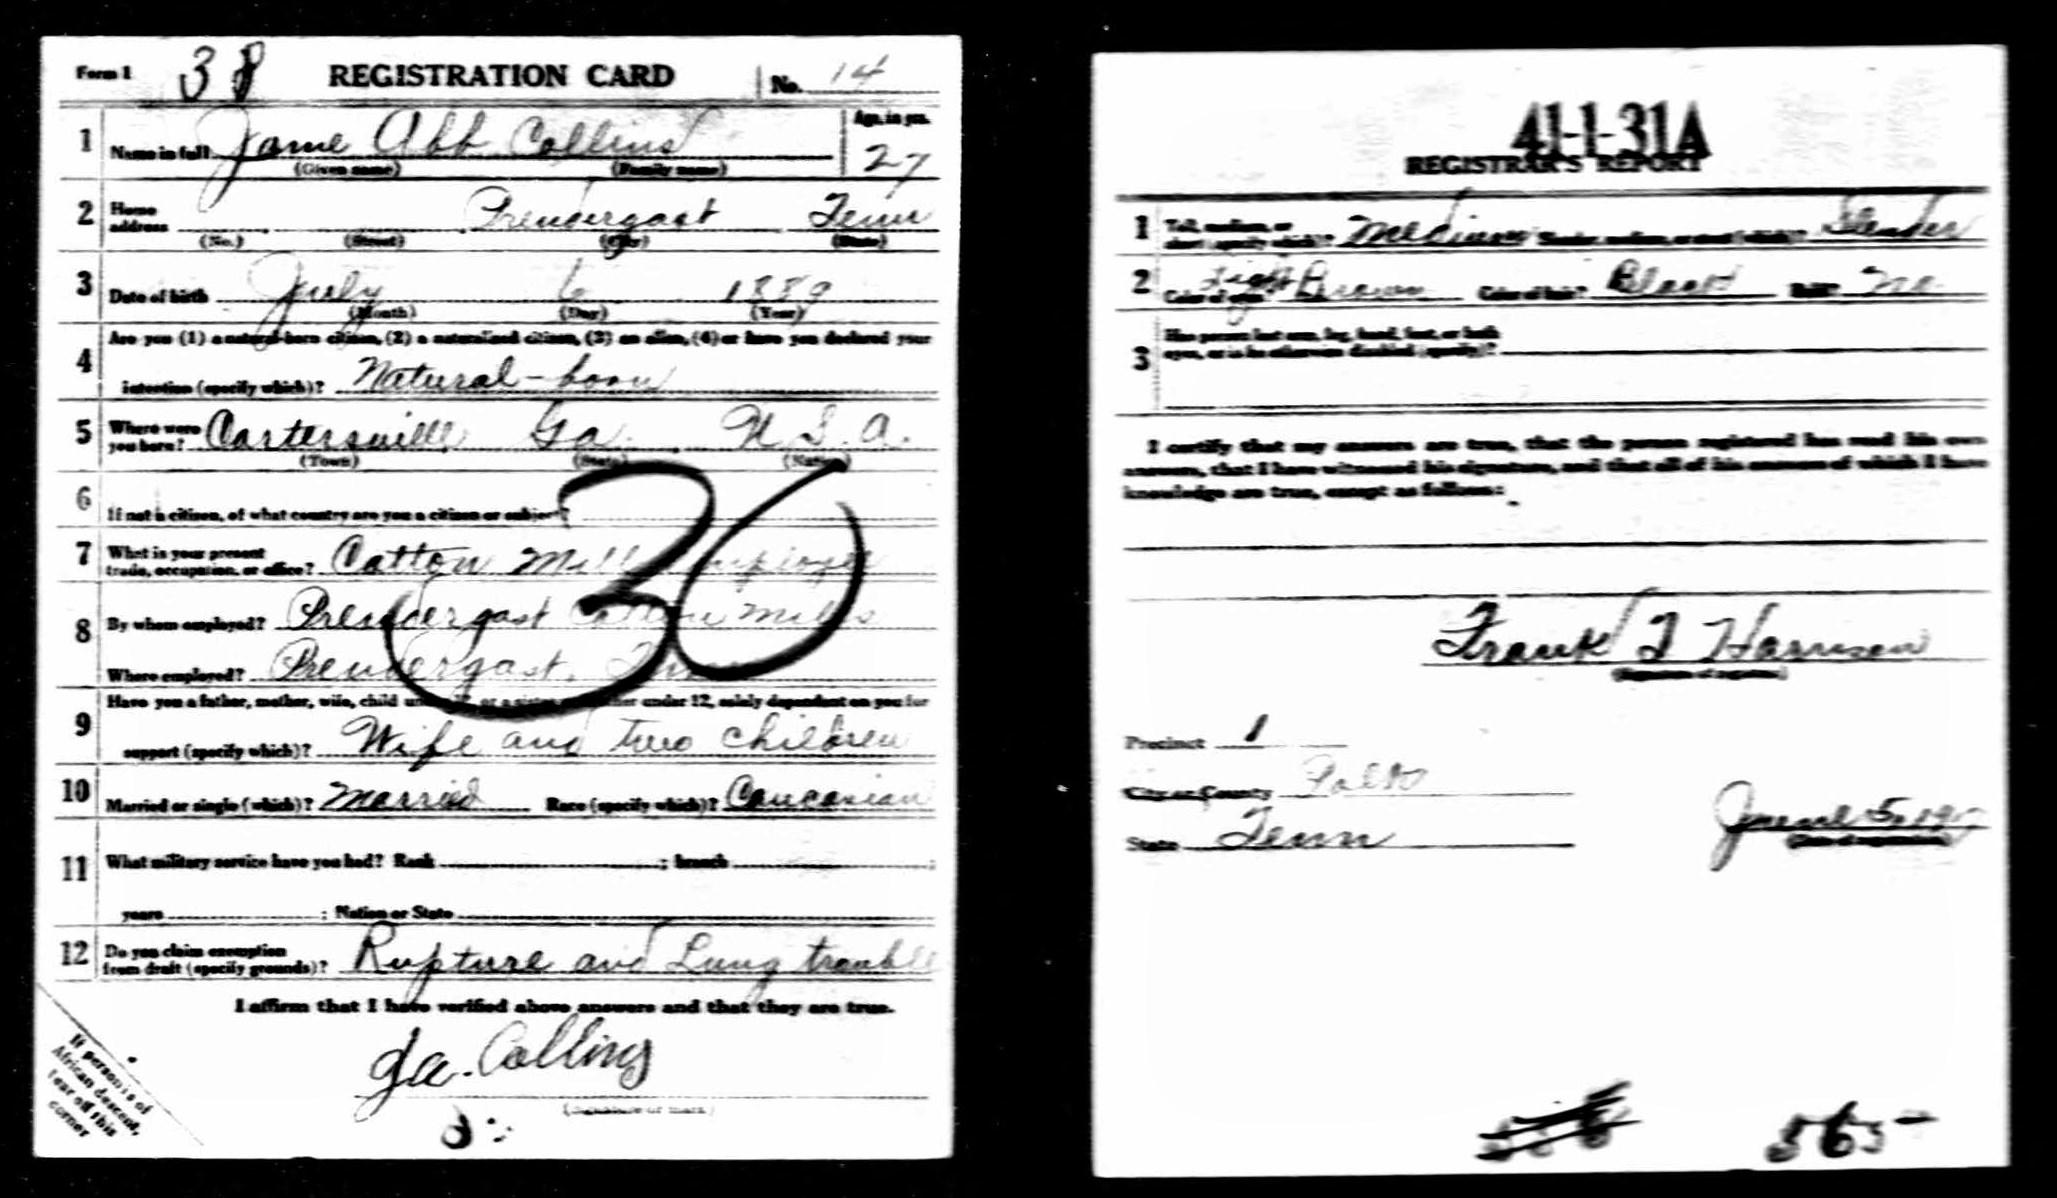 Form 1 38 REGISTRATION CARD No. 14
1 Name in full Jame Abb Collins Age, in yrs. 27
(Given name) (Family name)
2 Home address Prendergast Tenn
(No.) (Street) (City) (State)
3 Date of birth July 6 1889
(Month) (Day) (Year)
4 Are you (1) a natural-born citizen, (2) a naturalized citizen, (3) an alien, (4) or have you declared your
intention (specify which)? Natural-born
5 Where were you born? Cartersville Ga. U.S.A.
(Town) (State) (Nation)
6 If not a citizen, of what country are you a citizen or subject?
30
7 What is your present trade, occupation, or office? Catton Mill Employee
8 By whom employed? Prendergast Cotton Mills
Where employed? Prendergast, Tenn
9 Have you a father, mother, wife, child under 12, or a sister or brother under 12, solely dependent on you for
support (specify which)? Wife and two children
10 Married or single (which)? Married Race (specify which)? Caucasian
11 What military service have you had? Rank ; branch ;
years ; Nation or State
12 Do you claim exemption from draft (specify grounds)? Rupture and Lung trouble
I affirm that I have verified above answers and that they are true.
J a. Collins
(Signature or mark)
If person is of
African descent,
tear off this
corner
41-1-31A
REGISTRAR'S REPORT
1 Tall, medium, or short (specify which)? Medium Slender, medium, or stout (which)? Slender
2 Color of eyes? Light Brown Color of hair? Black Bald? No
3 Has person lost arm, leg, hand, foot, or both
eyes, or is he otherwise disabled (specify)?
I certify that my answers are true, that the person registered has read his own
answers, that I have witnessed his signature, and that all of his answers of which I have
knowledge are true, except as follows:
Frank T Harrison
(Signature of registrar)
Precinct 1
City or County Polk
State Tenn
June 5, 1917
(Date of registration)
565